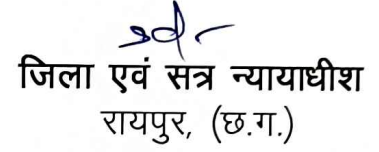 जिला एवं सत्र न्यायाधीश
रायपुर, (छ.ग.)